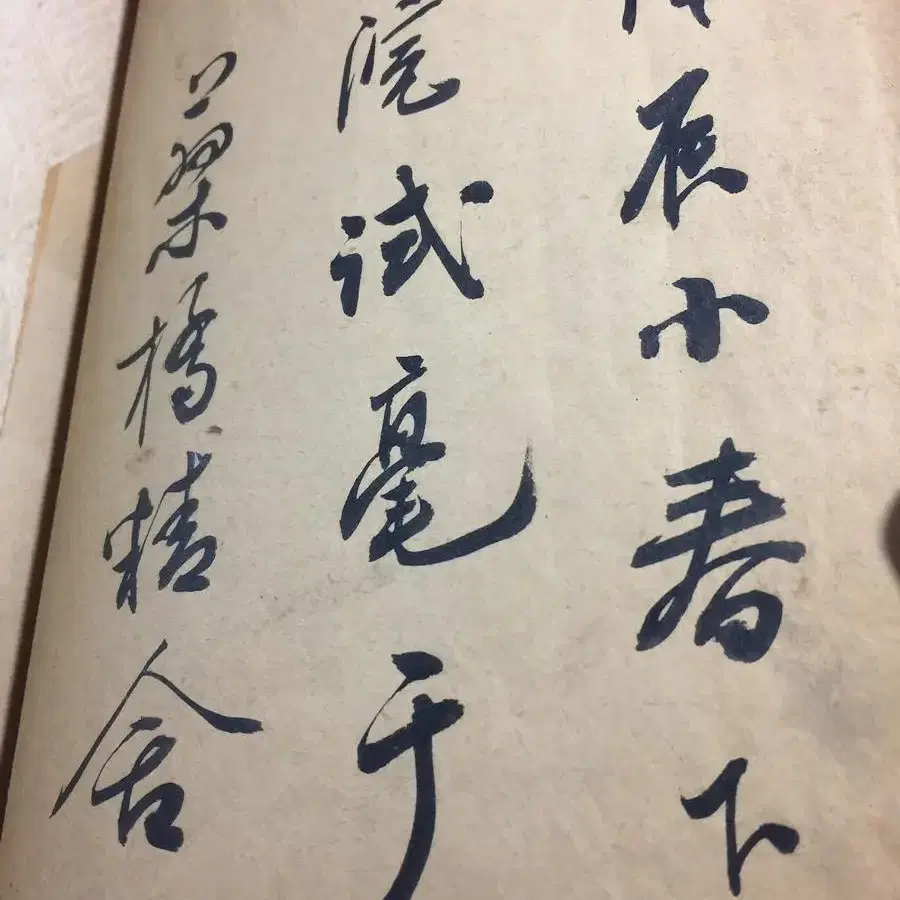 辰小春下
浣試毫于
翠橋精舍